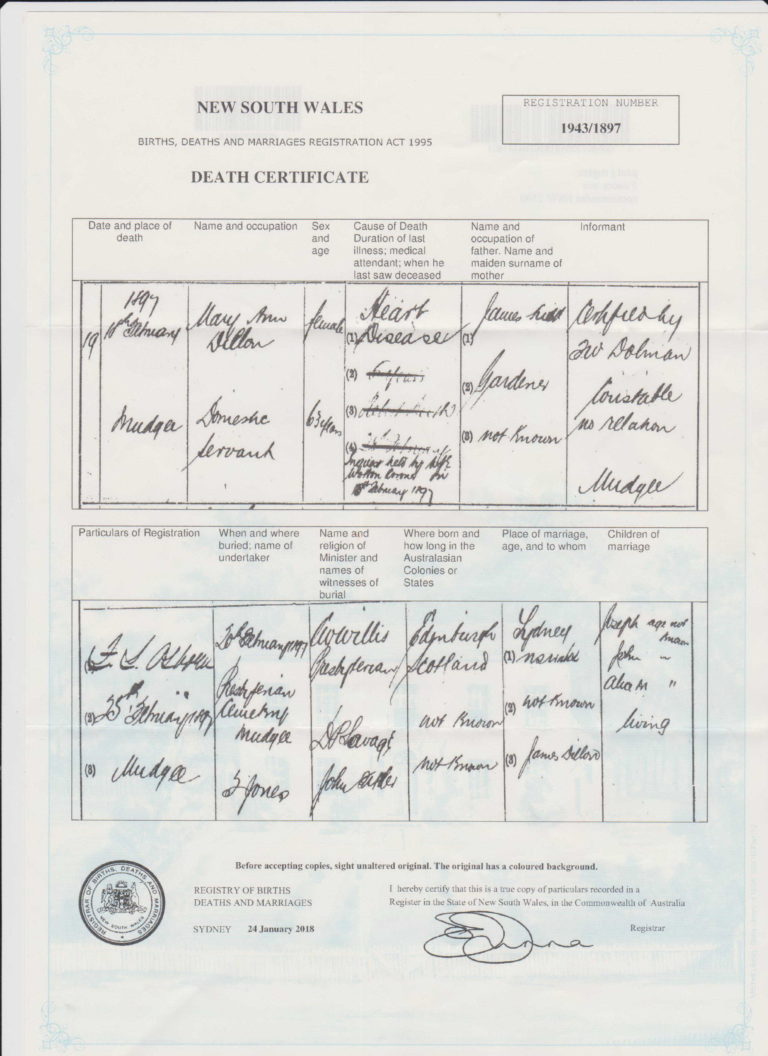 NEW SOUTH WALES
REGISTRATION NUMBER
1943/1897
BIRTHS, DEATHS AND MARRIAGES REGISTRATION ACT 1995
DEATH CERTIFICATE
Date and place of
death
Name and occupation
Sex
and
age
Cause of Death
Duration of last
illness; medical
attendant; when he
last saw deceased
Name and
occupation of
father. Name and
maiden surname of
mother
Informant
19
1897
February
Mudgee
Mary Ann
Dillon
Domestic
Servant
female
63 years
Heart
(1) Disease
(2)
(3)
(4)
Inquest held by
Coroner on
February 1897
James
(1)
(2) Gardener
(3) not known
Certified by
Dolman
Constable
no relation
Mudgee
Particulars of Registration
When and where
buried; name of
undertaker
Name and
religion of
Minister and
names of
witnesses of
burial
Where born and
how long in the
Australasian
Colonies or
States
Place of marriage,
age, and to whom
Children of
marriage
(1)
(2) 25th February 1897
(3) Mudgee
20th February 1897
Presbyterian
Cemetery
Mudgee
Jones
Willis
Presbyterian
D P Savage
John
Edinburgh
Scotland
not known
not known
Sydney
(1)
(2) not known
(3) James Dillon
Joseph age not
known
John "
"
living
Before accepting copies, sight unaltered original. The original has a coloured background.
REGISTRAR OF BIRTHS, DEATHS AND MARRIAGES
NEW SOUTH WALES
REGISTRY OF BIRTHS
DEATHS AND MARRIAGES
SYDNEY 24 January 2018
I hereby certify that this is a true copy of particulars recorded in a
Register in the State of New South Wales, in the Commonwealth of Australia
Registrar